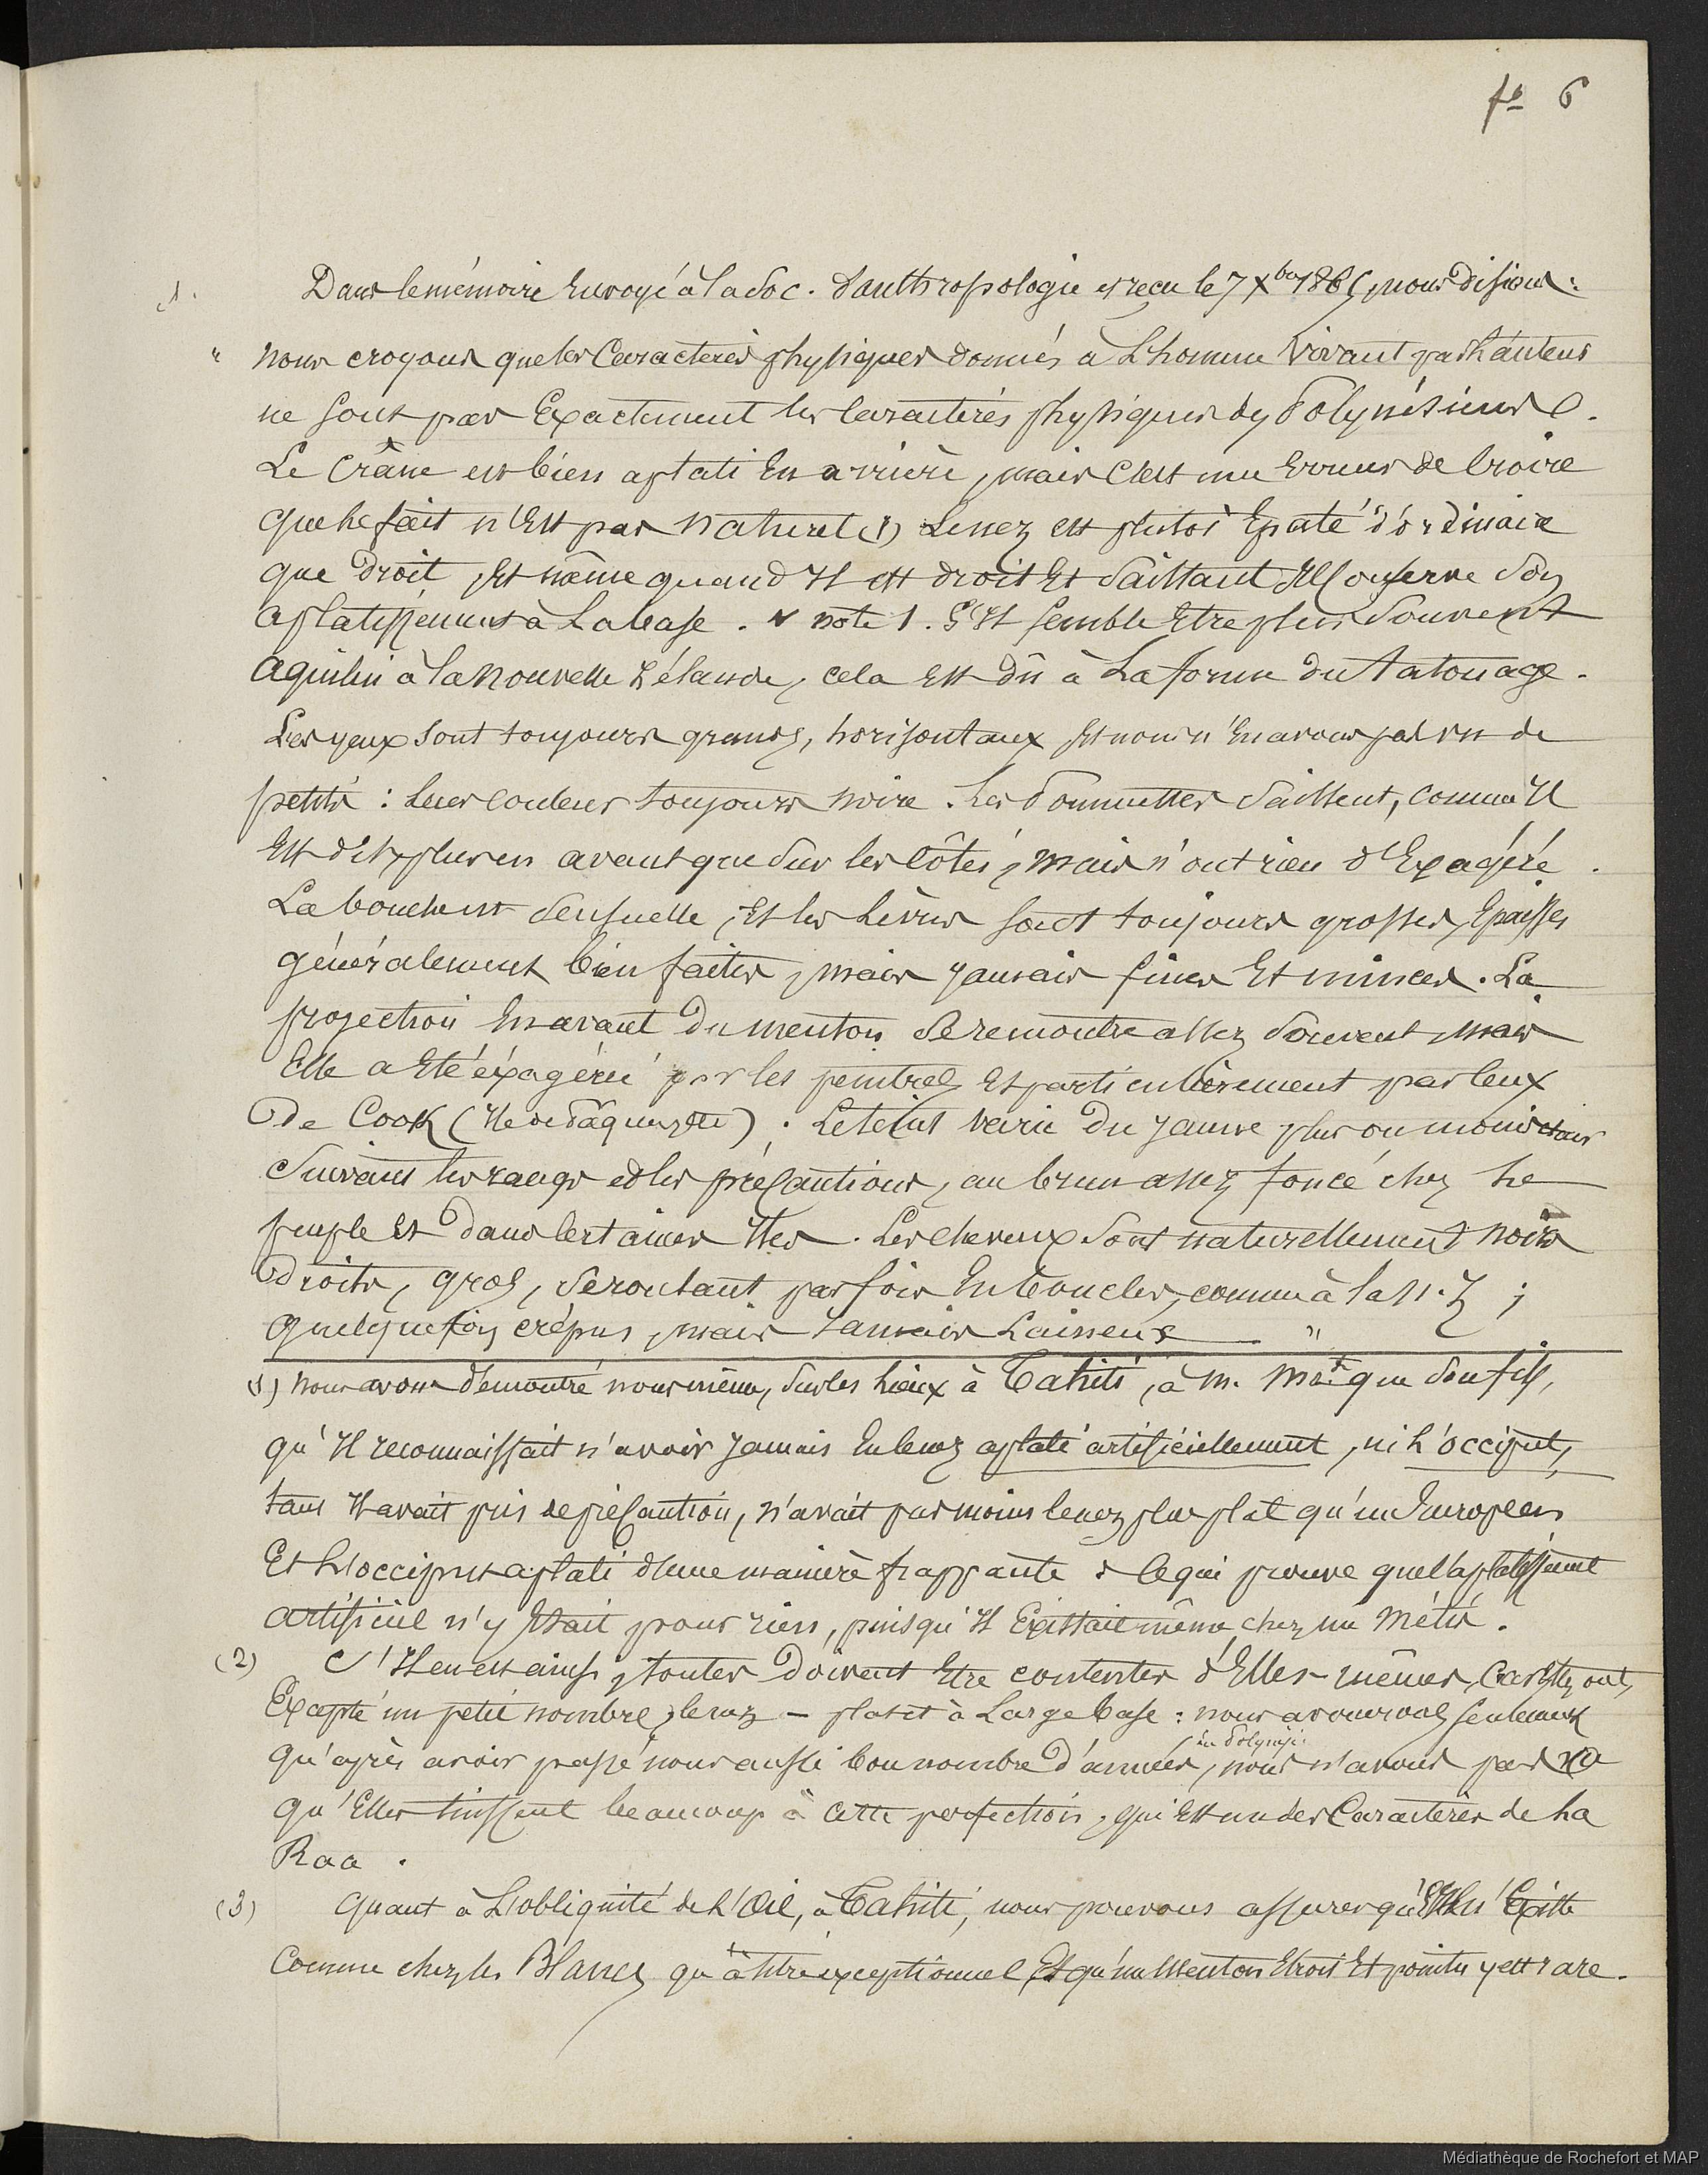 fo 6
1. Dans le mémoire Envoyé à la Soc. d'anthropologie et reçu le 7 Xbre 1865, nous disions :
" nous croyons que les Caractères physiques donnés à L'homme vivant par L'auteur
ne sont pas Exactement les caractères physiques des Polynésiens
Le Crâne est bien aplati En arrière, mais C'est une Erreur de Croire
que le fait n'Est pas naturel (1) Le nez est plutôt Epaté d'ordinaire
que droit, Et même quand Il est droit Et Saillant, Il Conserve Son
aplatissement à La base. v note 1. S'Il semble Etre plus Souvent
aquilin à la Nouvelle Zélande, cela Est dû à La forme du Tatouage.
Les yeux Sont toujours grands, horisontaux Et nous n'En avons pas vu de
petits : Leur couleur toujours noire. Les Pommettes Saillent, comme Il
Est dit, plus en avant que Sur les Côtés, mais n'ont rien d'Exagéré.
La bouche est Sensuelle, Et les Lèvres sont toujours grosses, Epaisses
généralement bien faites, mais jamais fines Et minces. La
projection En avant du menton Se remontre assez Souvent, mais
Elle a Eté éxagérée par les peintres, Et particulièrement par Ceux
de Cook (Ile de Pâques, etc) ; Le teint varie du jaune plus ou moins clair
Suivant les rangs et les précautions, au brun assez foncé chez Le
peuple Et dans Certaines Iles. Les cheveux Sont naturellement noirs
droits, gros, Se roulant parfois En boucles, comme à la N. Z ;
quelquefois crépus, mais Jamais Laineux "
(1) nous avons démontré nous même, Sur les Lieux à Tahiti, à M. Mt que Son fils,
qu'Il reconnaissait n'avoir jamais Eu le nez aplati artificiellement, ni L'occiput,
tant Il avait pris de précaution, n'avait pas moins le nez plus plat qu'un Européen
Et L'occiput aplati d'une manière frappante : Ce qui prouve que l'aplatissement
artificiel n'y Etait pour rien, puisqu'Il Existait même chez un Métis.
(2) S'Il en est ainsi, toutes doivent Etre contentes d'Elles-mêmes, Car Elles ont,
Excepté un petit nombre, le nez - plat et à Large base : nous avouerons seulement
qu'après avoir passé nous aussi bon nombre d'années en Polynésie, nous n'avons pas vu
qu'Elles tinssent beaucoup à cette perfection, qui Est un des Caractères de La
Race.
(3) Quant à L'obliquité de L'Oeil, à Tahiti, nous pouvons assurer qu'Elle n'Existe
Comme chez les Blancs qu'à titre exceptionnel, Et qu'un Menton Etroit Et pointu y est rare.
Médiathèque de Rochefort et MAP